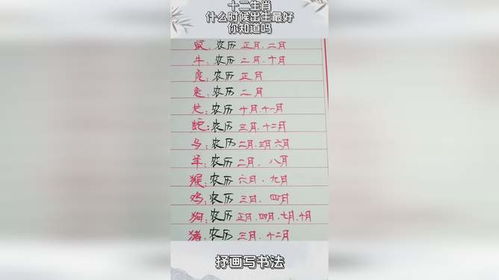 十二生肖
什么时候出生最好
你知道吗
鼠:农历 正月、二月
牛:农历 二月、十月
虎:农历 正月
兔:农历 二月
龙:农历 十月十一月
蛇:农历 三月、十二月
马:农历 二月、三月 六月
羊:农历 二月、八月
猴:农历 六月、九月
鸡:农历 三月、四月
狗:农历 正月、四月、七月、十月
猪:农历 三月、十二月
抒画写书法